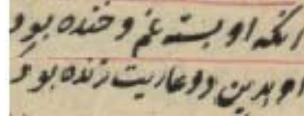 آنکه او بسته غم و خنده بود
او بدین دو عاریت زنده بود